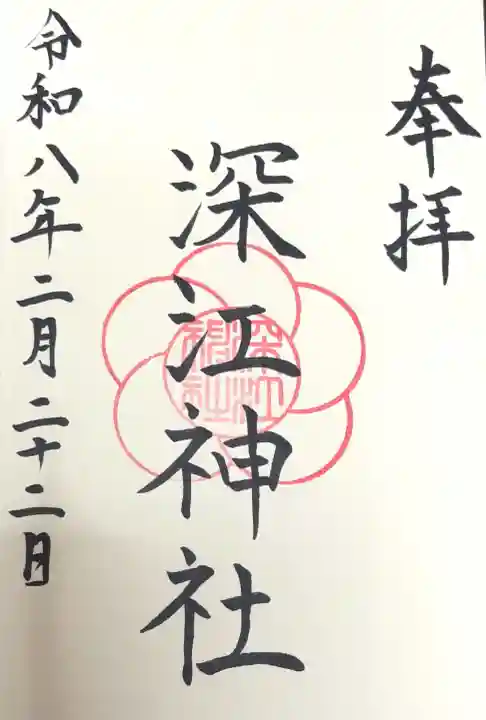 奉拝
深江神社
深江神社
令和八年二月二十二日